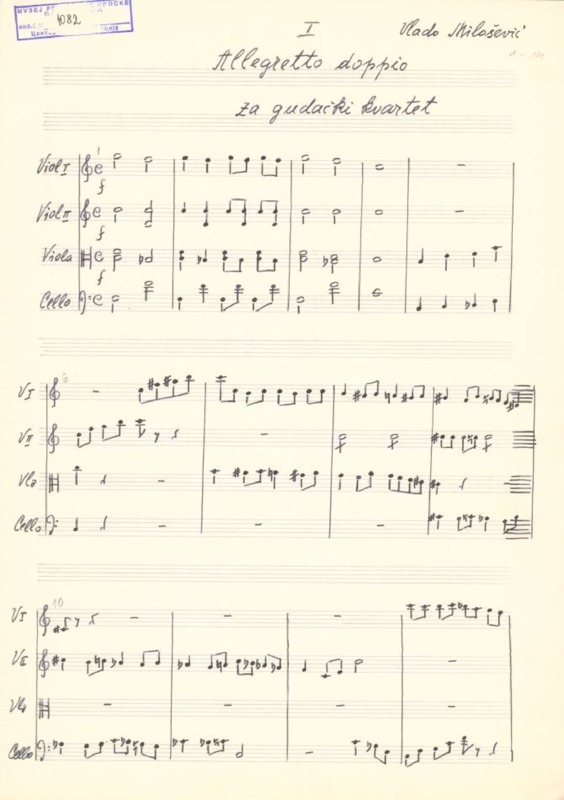 1082
I
Vlado Milošević
Allegretto doppio
za gudački kvartet
Viol I
f
Viol II
f
Viola
f
Cello
V I
V II
Vla
Cello
10
V I
V II
Vla
Cello